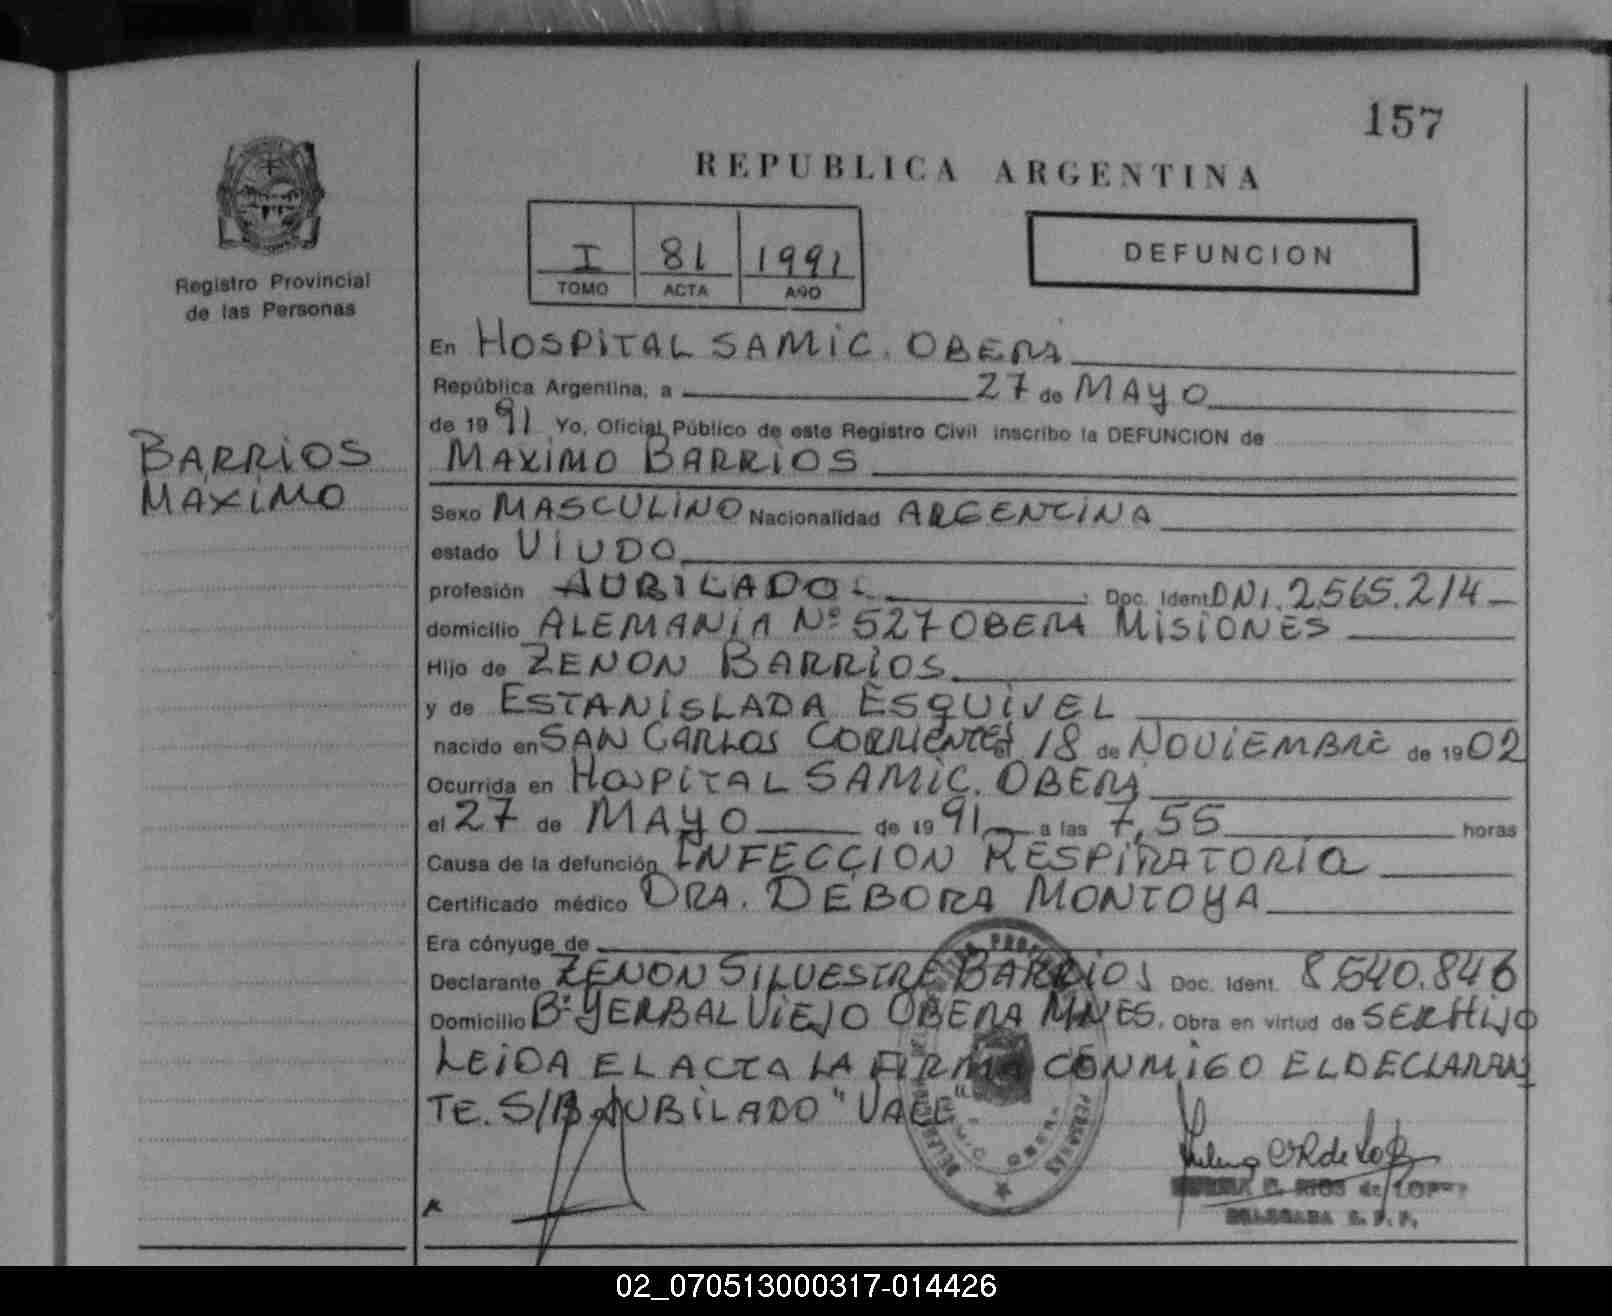 157
REPUBLICA ARGENTINA
I 81 1991
TOMO ACTA AÑO
DEFUNCION
Registro Provincial
de las Personas
BARRIOS
MÁXIMO
En HOSPITAL SAMIC. OBERA
República Argentina, a 27 de MAYO
de 1991 Yo, Oficial Público de este Registro Civil inscribo la DEFUNCION de
MAXIMO BARRIOS
Sexo MASCULINO Nacionalidad ARGENTINA
estado VIUDO
profesión AUBILADO Doc. Ident. DNI. 2.565.214
domicilio ALEMANIA Nº 527 OBERA MISIONES
Hijo de ZENON BARRIOS
y de ESTANISLADA ESQUIVEL
nacido en SAN CARLOS CORRIENTES el 18 de NOVIEMBRE de 1902
Ocurrida en HOSPITAL SAMIC. OBERA
el 27 de MAYO de 1991 a las 7,55 horas
Causa de la defunción INFECCION RESPIRATORIA
Certificado médico DRA. DEBORA MONTOYA
Era cónyuge de
Declarante ZENON SILVESTRE BARRIOS Doc. Ident. 8.540.846
Domicilio Bº YERBAL VIEJO OBERA MNES. Obra en virtud de SER HIJO
LEIDA EL ACTA LA FIRMA CONMIGO EL DECLARAN
TE. S/B JUBILADO "VALE"
RIOS de LOPEZ
DELEGADA
02_070513000317-014426